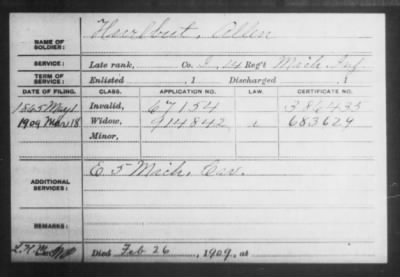 NAME OF SOLDIER: Hurlbut, Allen
SERVICE: Late rank, Co. I, 14 Reg't Mich. Inf.
TERM OF SERVICE: Enlisted , 1 Discharged , 1
DATE OF FILING. CLASS. APPLICATION NO. LAW. CERTIFICATE NO.
1865 May 1 Invalid, 67154 386435
1909 Mar 18 Widow, 914842 683629
Minor,
ADDITIONAL SERVICES: E. 5 Mich. Cav.
REMARKS:
Died Feb 26, 1909, at